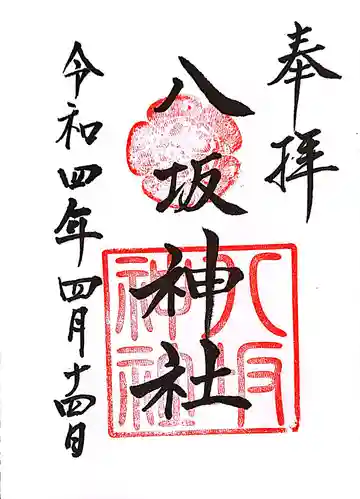 奉拝
八坂神社
八坂神社
令和四年四月十四日